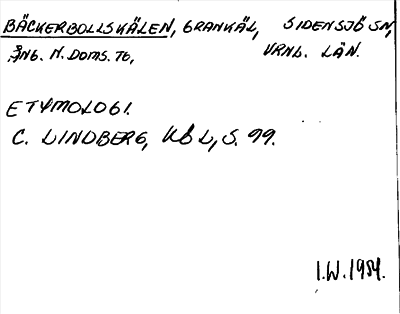 BÄCKERBOLLSKÄLEN, GRANKÄL, SIDENSJÖ SN,
ÅNG. N. DOMS. TG, VRNL. LÄN.
ETYMOLOGI.
C. LINDBERG, KGL, S. 99.
I.W. 1984.